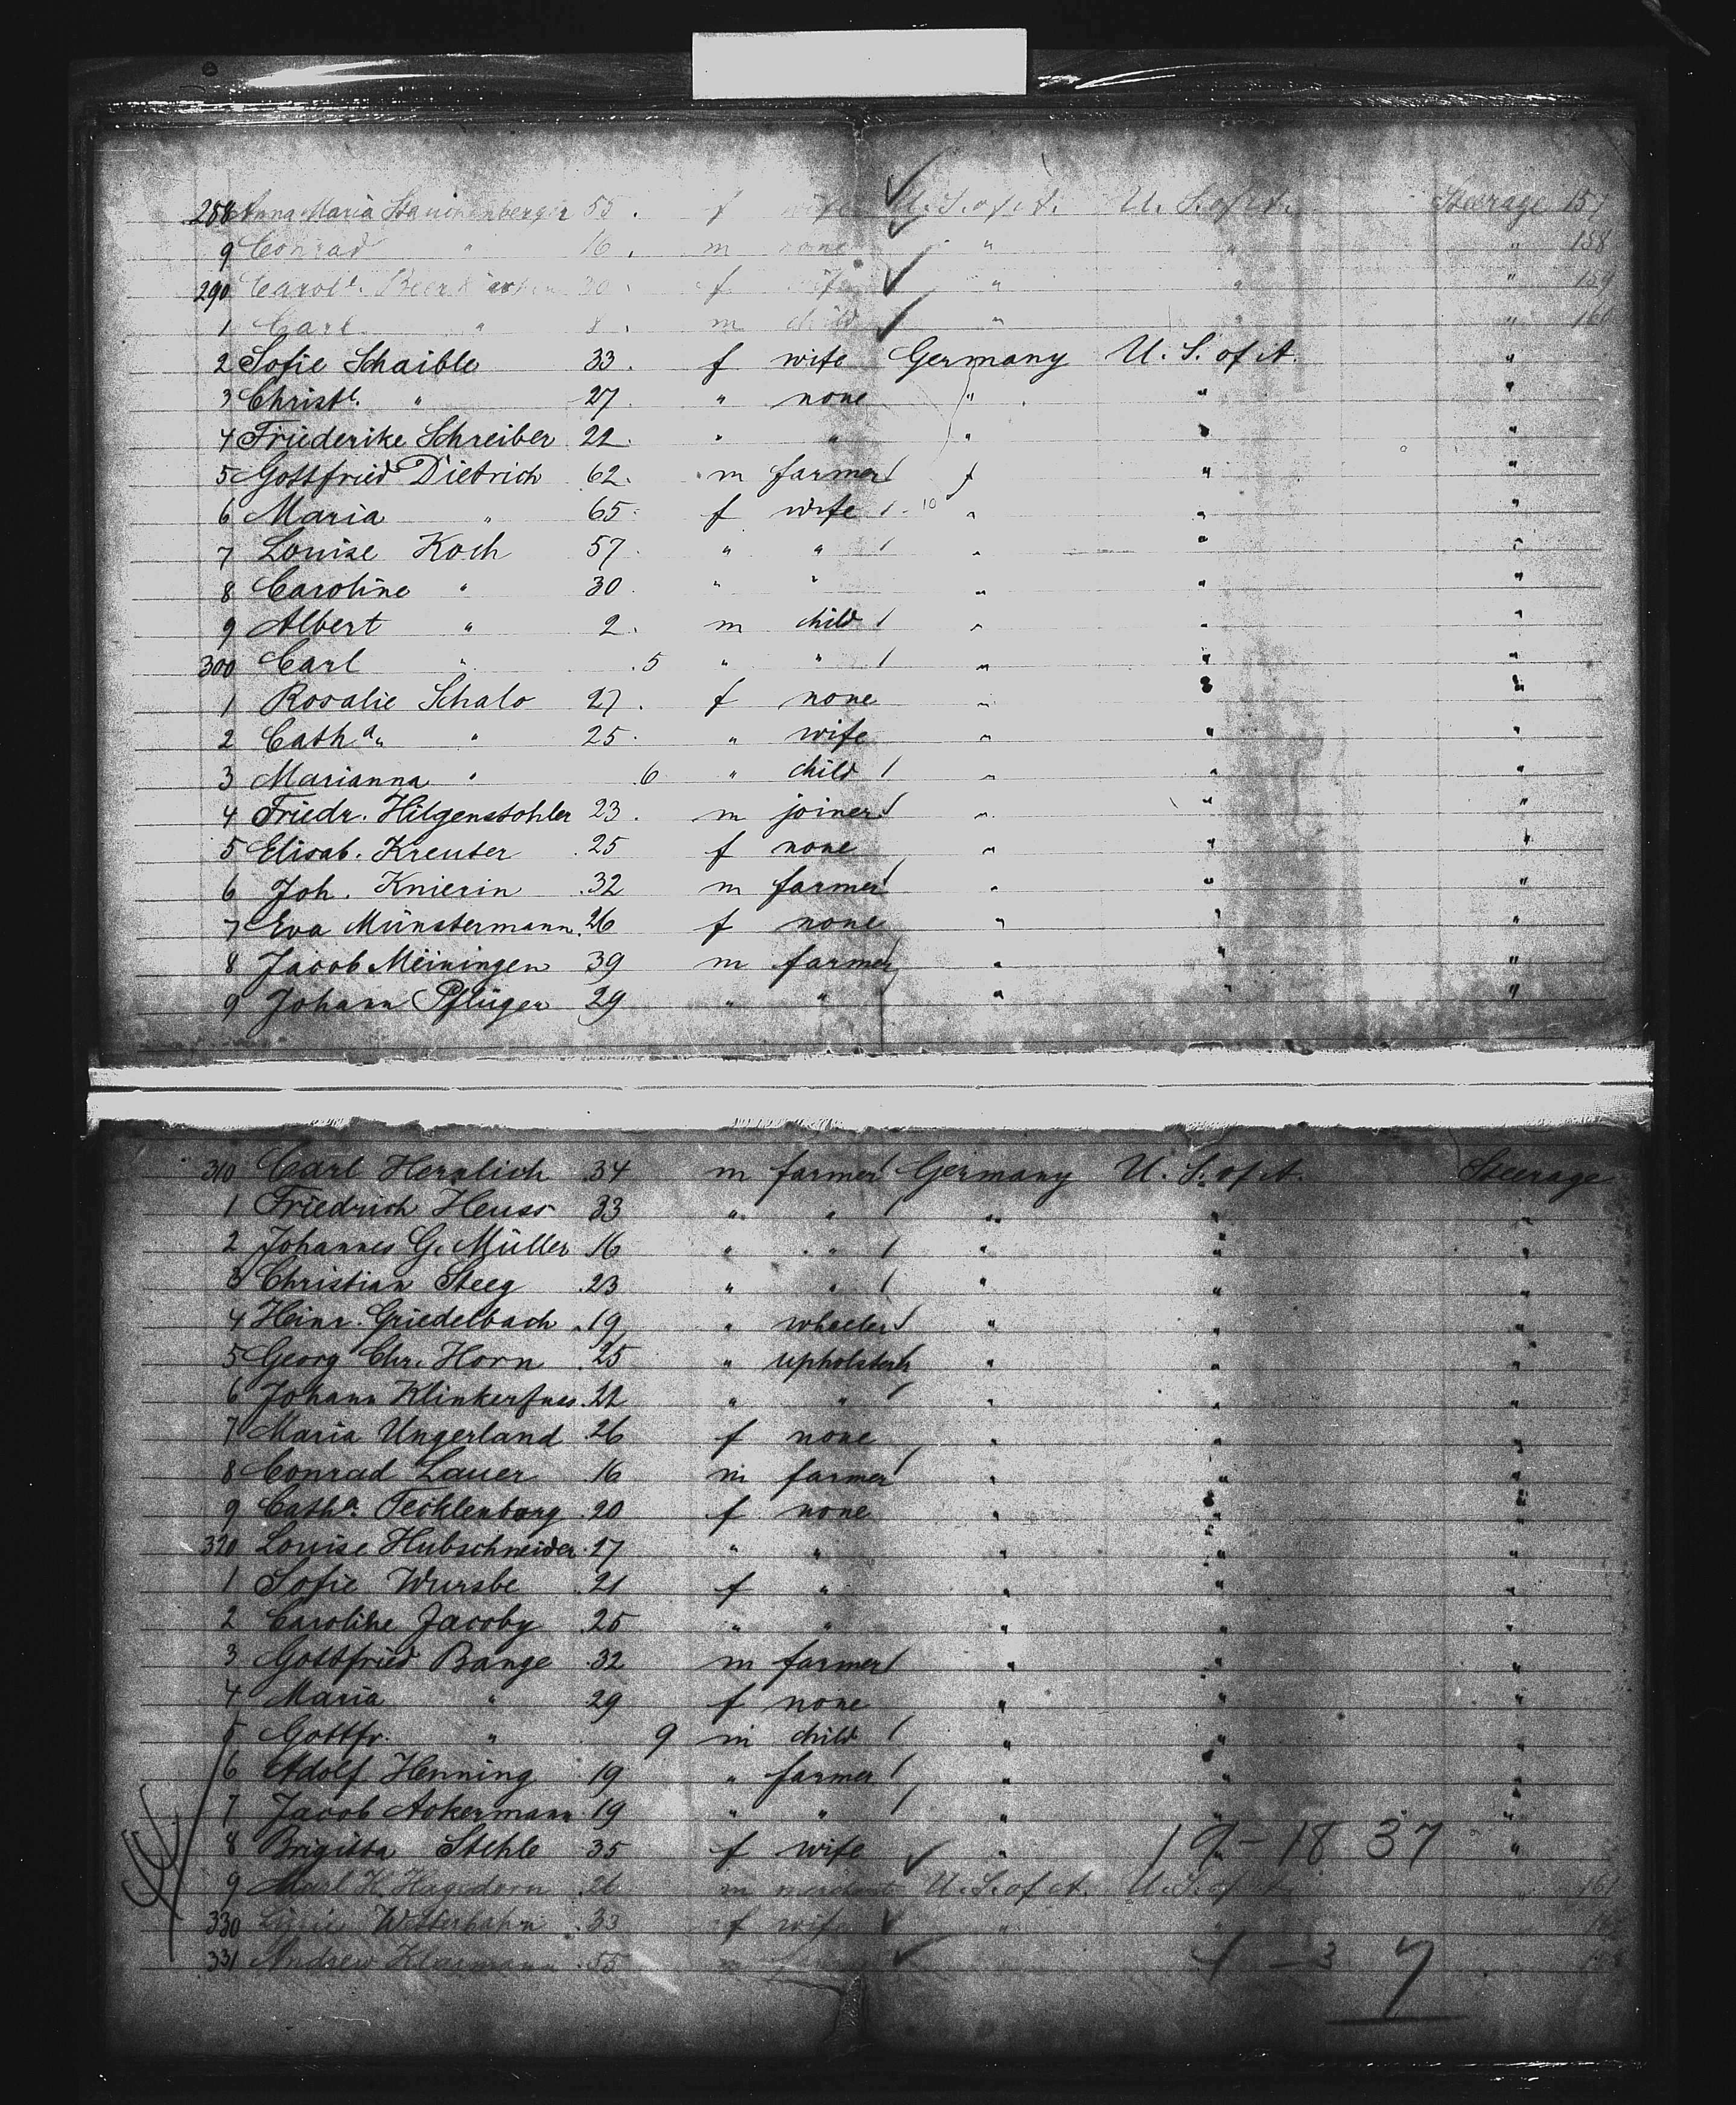 288 Anna Maria 55. f wife U. S. of A. U. S. of A. Steerage 157
9 Conrad " 16. m none " " " 158
290 Carol e. 30. f wife " " " 159
1 Carl " 8. m child " " "
2 Sofie Schaible 33. f wife Germany U. S. of A. "
3 Christe. " 27. " none " " "
4 Friederike Schreiber 22. " " " " "
5 Gottfried Dietrich 62. m farmer / " "
6 Maria " 65. f wife / 10 " " "
7 Louise Koch 57. " " / " " "
8 Caroline " 30. " " " " "
9 Albert " 2. m child / " " "
300 Carl " .5 " " / " " "
1 Rosalie Schalo 27. f none " " "
2 Catha. " 25. " wife " " "
3 Marianna " .6 " child / " " "
4 Friedr. Hilgenstohler 23. m joiner / " " "
5 Elisab. Kreuter .25 f none " " "
6 Joh. Knierin .32 m farmer / " " "
7 Eva Münstermann .26 f none " " "
8 Jacob Meiningen 39 m farmer / " " "
9 Johann Pflüger 29 " " " " "
310 Carl Herzlich .34 m farmer / Germany U. S. of A. Steerage
1 Friedrich Heuss 33 " " / " " "
2 Johannes G. Müller .16 " " / " " "
3 Christian Steeg .23 " " / " " "
4 Heinr. Griedelbach .19 " / " " "
5 Georg Chr. Horn .25 " upholsterer / " " "
6 Johann Klinkerfues .22 " " / " " "
7 Maria Ungerland .26 f none " " "
8 Conrad Lauer .16 m farmer / " " "
9 Catha. Tecklenborg .20 f none " " "
320 Louise Hubschneider .17 " " " " "
1 Sofie Wursbe .21 f " " " "
2 Caroline Jacoby .25 " " " " "
3 Gottfried Bange .32 m farmer / " " "
4 Maria " .29 f none " " "
5 Gottfr. " 9 m child / " " "
6 Adolf Henning .19 " farmer / " " "
7 Jacob Ackermann .19 " " / " " "
8 Brigitta Stehle .35 f wife " 19 - 18 37 "
9 H. Hagedorn m merchant U. S. of A. U. S. of A. " 161
330 Westerhahn .33 f wife " " "
331 Andrew Klarmann .55 m 4 - 3 7